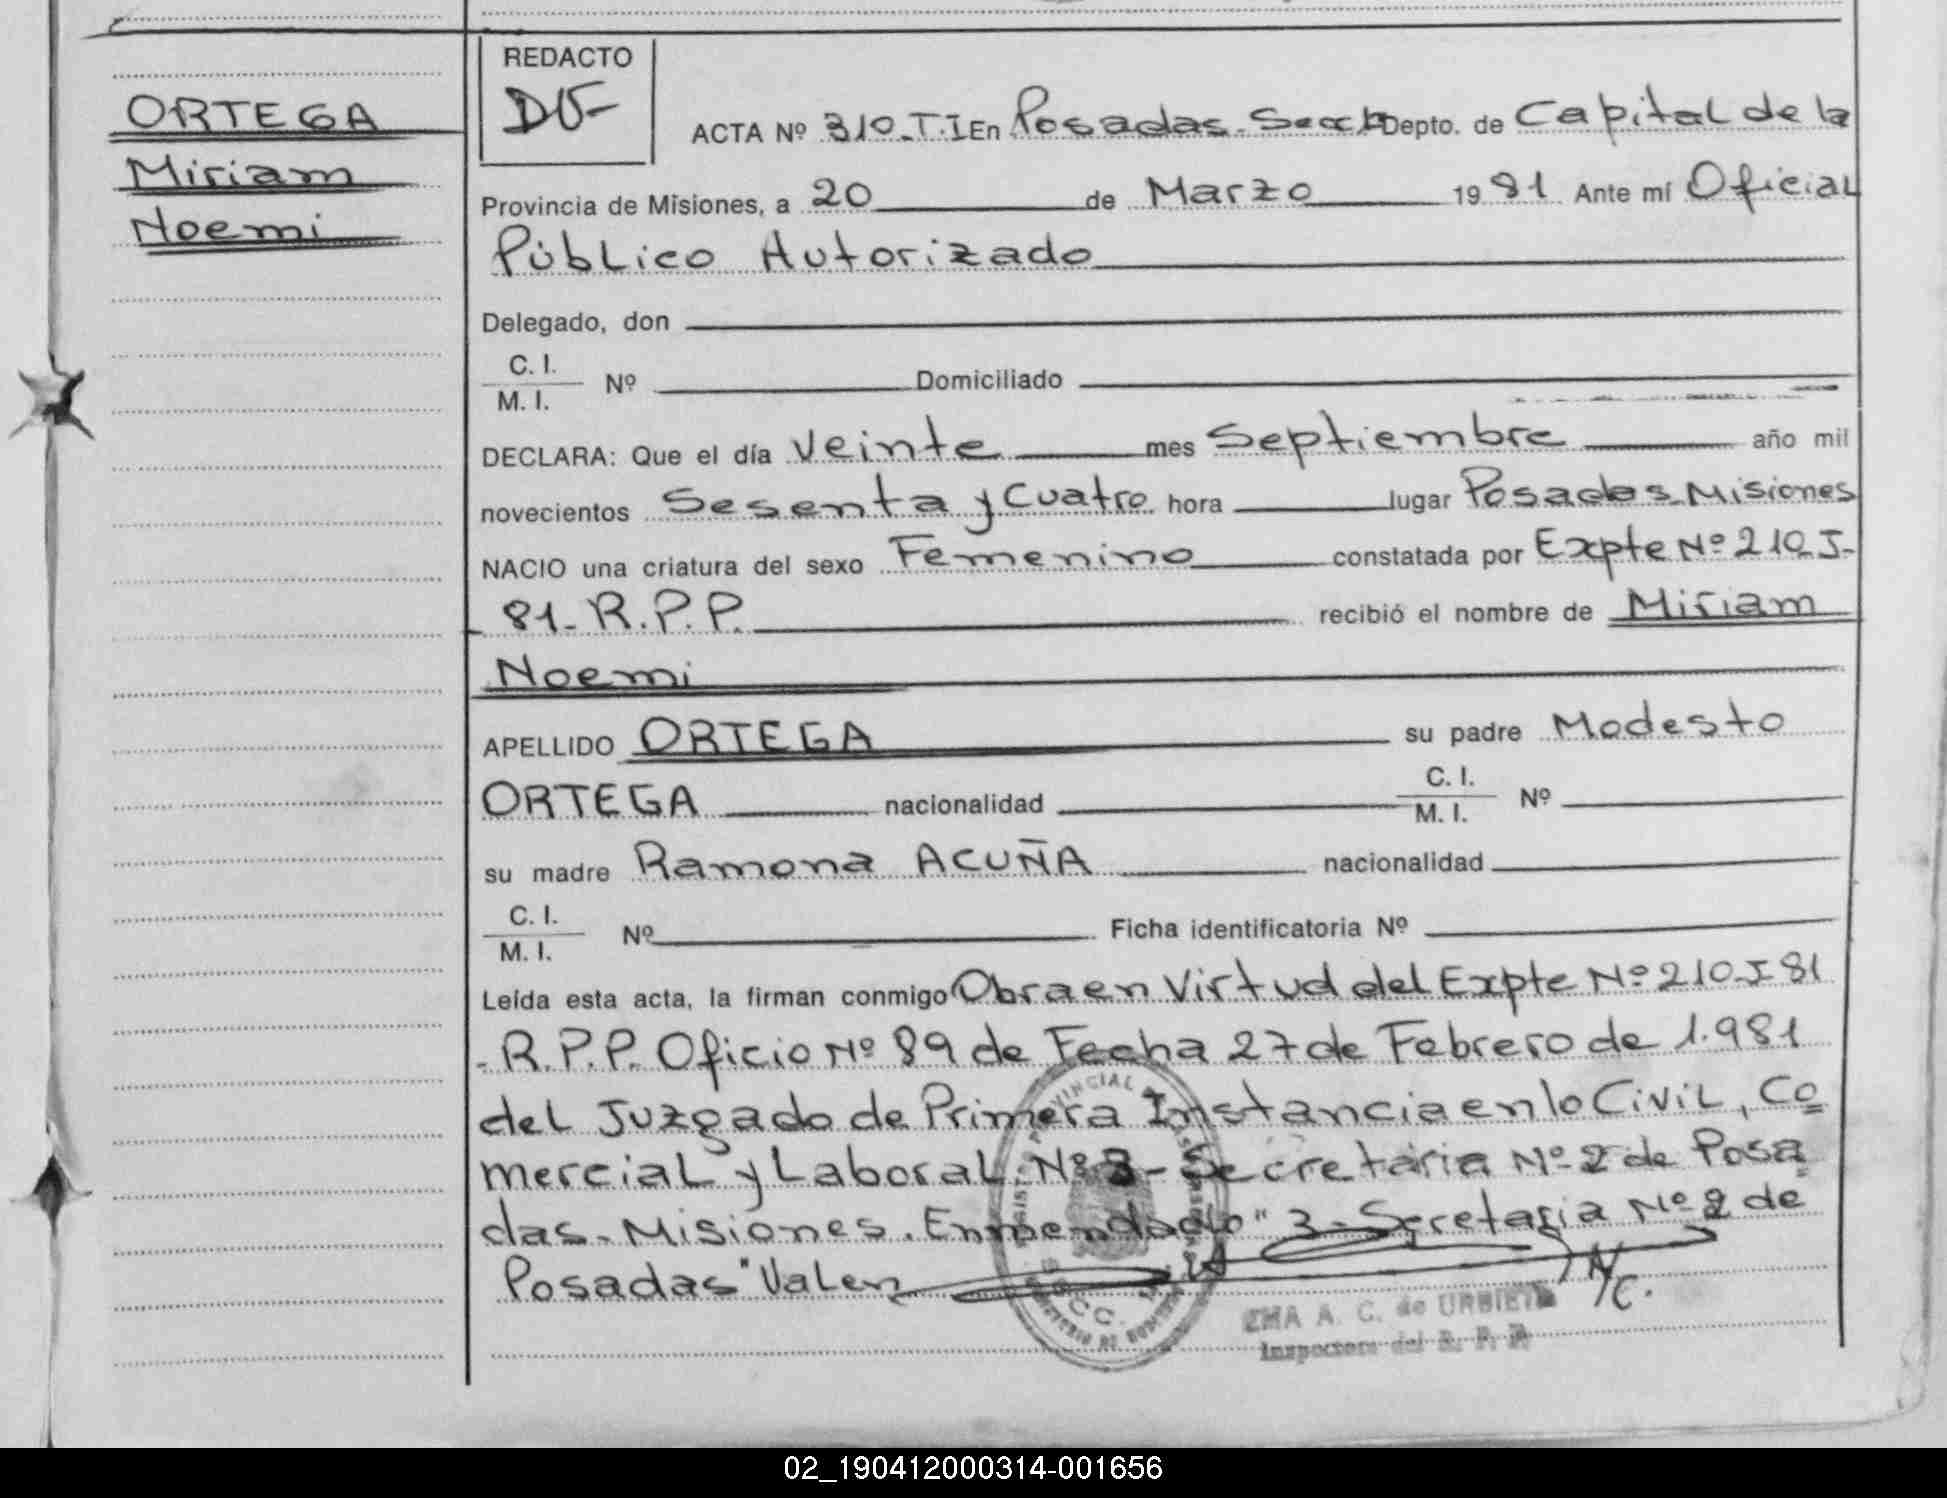 ORTEGA
Miriam
Noemi
REDACTO
ACTA Nº 310.T.I En Posadas. Secc. Depto. de Capital de la
Provincia de Misiones, a 20 de Marzo 1981 Ante mí Oficial
Público Autorizado
Delegado, don
C. I.
M. I. Nº Domiciliado
DECLARA: Que el día Veinte mes Septiembre año mil
novecientos Sesenta y Cuatro hora lugar Posadas Misiones
NACIO una criatura del sexo Femenino constatada por Expte Nº 210 J-
81- R.P.P. recibió el nombre de Miriam
Noemi
APELLIDO ORTEGA su padre Modesto
ORTEGA nacionalidad C. I. M. I. Nº
su madre Ramona ACUÑA nacionalidad
C. I.
M. I. Nº Ficha identificatoria Nº
Leída esta acta, la firman conmigo Obra en Virtud del Expte Nº 210 J 81
- R.P.P. Oficio Nº 89 de Fecha 27 de Febrero de 1.981
del Juzgado de Primera Instancia en lo Civil, Co
mercial y Laboral Nº 3 - Secretaria Nº 2 de Posa
das - Misiones. Enmendado "3 - Secretaria Nº 2 de
Posadas" Valen
A. C. de URBIETA
Inspectora del R. P. P.
02_190412000314-001656